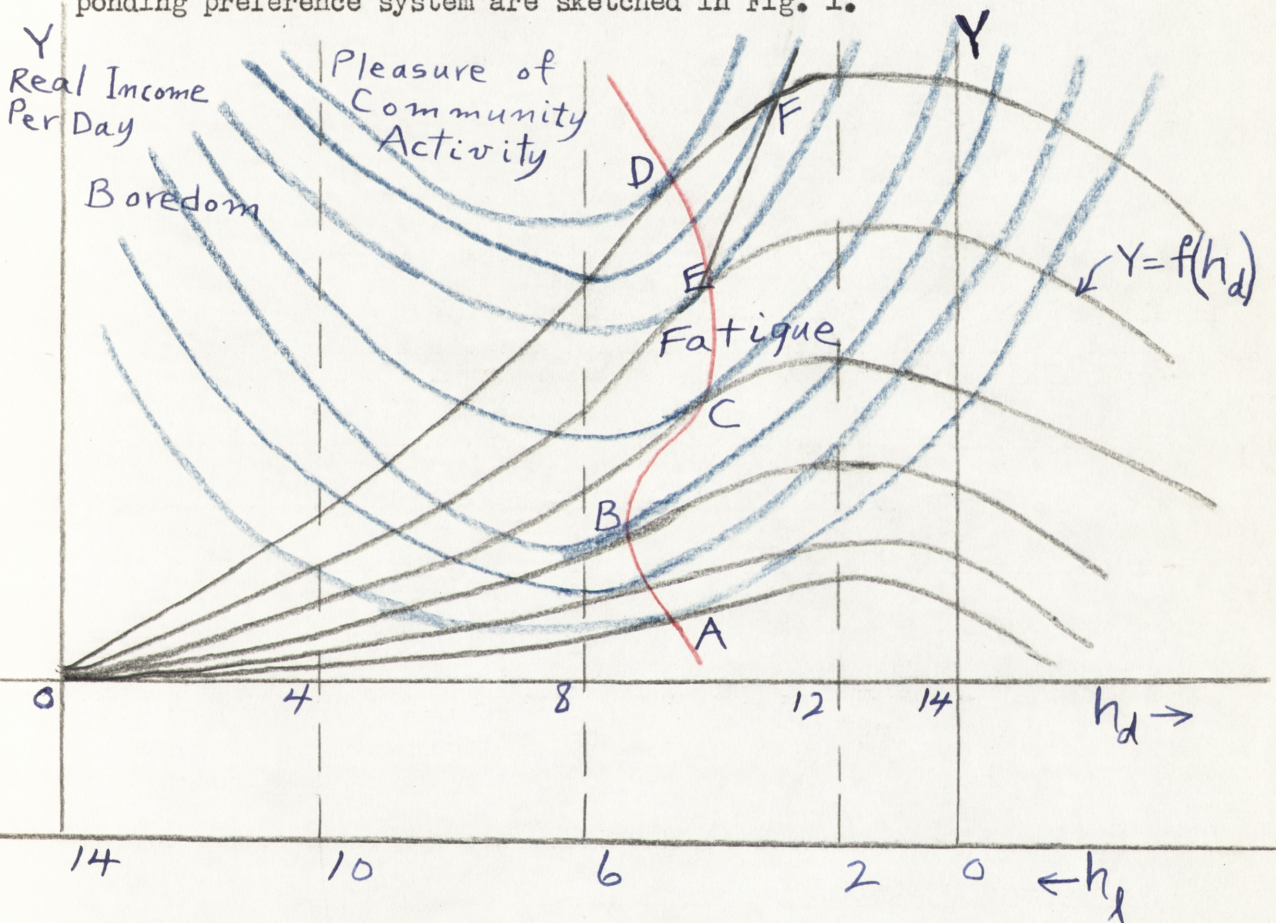 ponding preference system are sketched in Fig. 1.
Y
Real Income
Per Day
Pleasure of
Community
Activity
Y
Boredom
F
D
E
Y=f(h_d)
Fatigue
C
B
A
0 4 8 12 14 h_d →
14 10 6 2 0 ← h_l